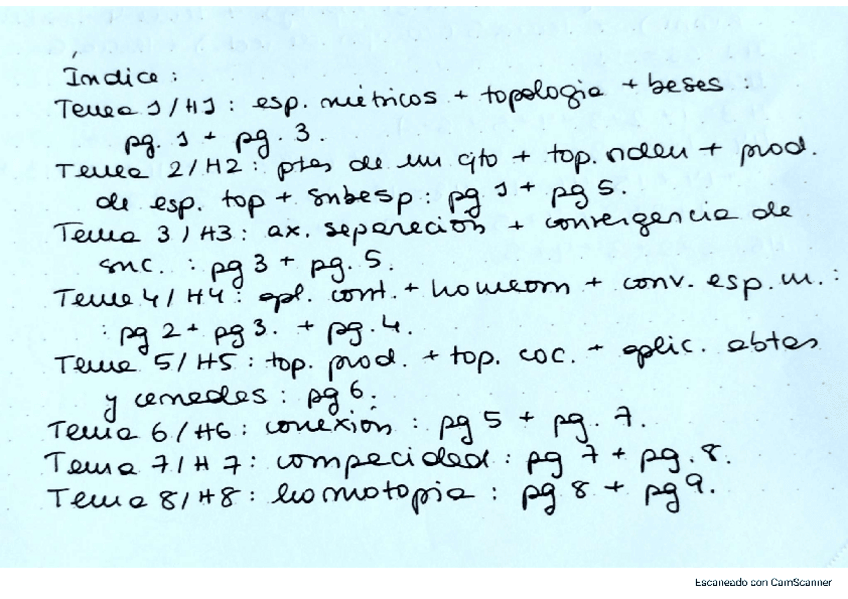 Índice:
Tema 1/H1: esp. métricos + topologia + bases:
pg. 1 + pg. 3.
Tema 2/H2: ptos de un cjto + top. orden + prod.
de esp. top + subesp: pg 1 + pg 5.
Tema 3/H3: ax. separación + convergencia de
suc. : pg 3 + pg. 5.
Tema 4/H4: apl. cont. + homeom + conv. esp. m.:
: pg 2 + pg 3. + pg. 4.
Tema 5/H5: top. prod. + top. coc. + aplic. abtas
y cerradas: pg 6.
Tema 6/H6: conexión: pg 5 + pg. 7.
Tema 7/H7: compacidad: pg 7 + pg. 8.
Tema 8/H8: homotopia: pg 8 + pg 9.
Escaneado con CamScanner